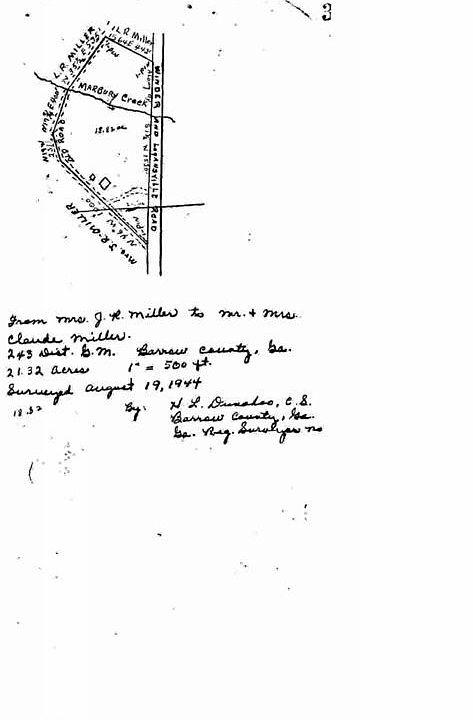 3
L.R. Miller
L.R. MILLER
MARBURY Creek
18.82 ac
OLD ROAD
WINDER AND LOGANSVILLE ROAD
MRS. J.R. MILLER
From Mrs. J. R. Miller to Mr. + Mrs.
Claude Miller.
243 Dist. G.M. Barrow County, Ga.
21.32 acres 1" = 500 ft.
Surveyed August 19, 1944
18.82
By: H. L. Dunahoo, C.S.
Barrow County, Ga.
Ga. Reg. Surveyor no